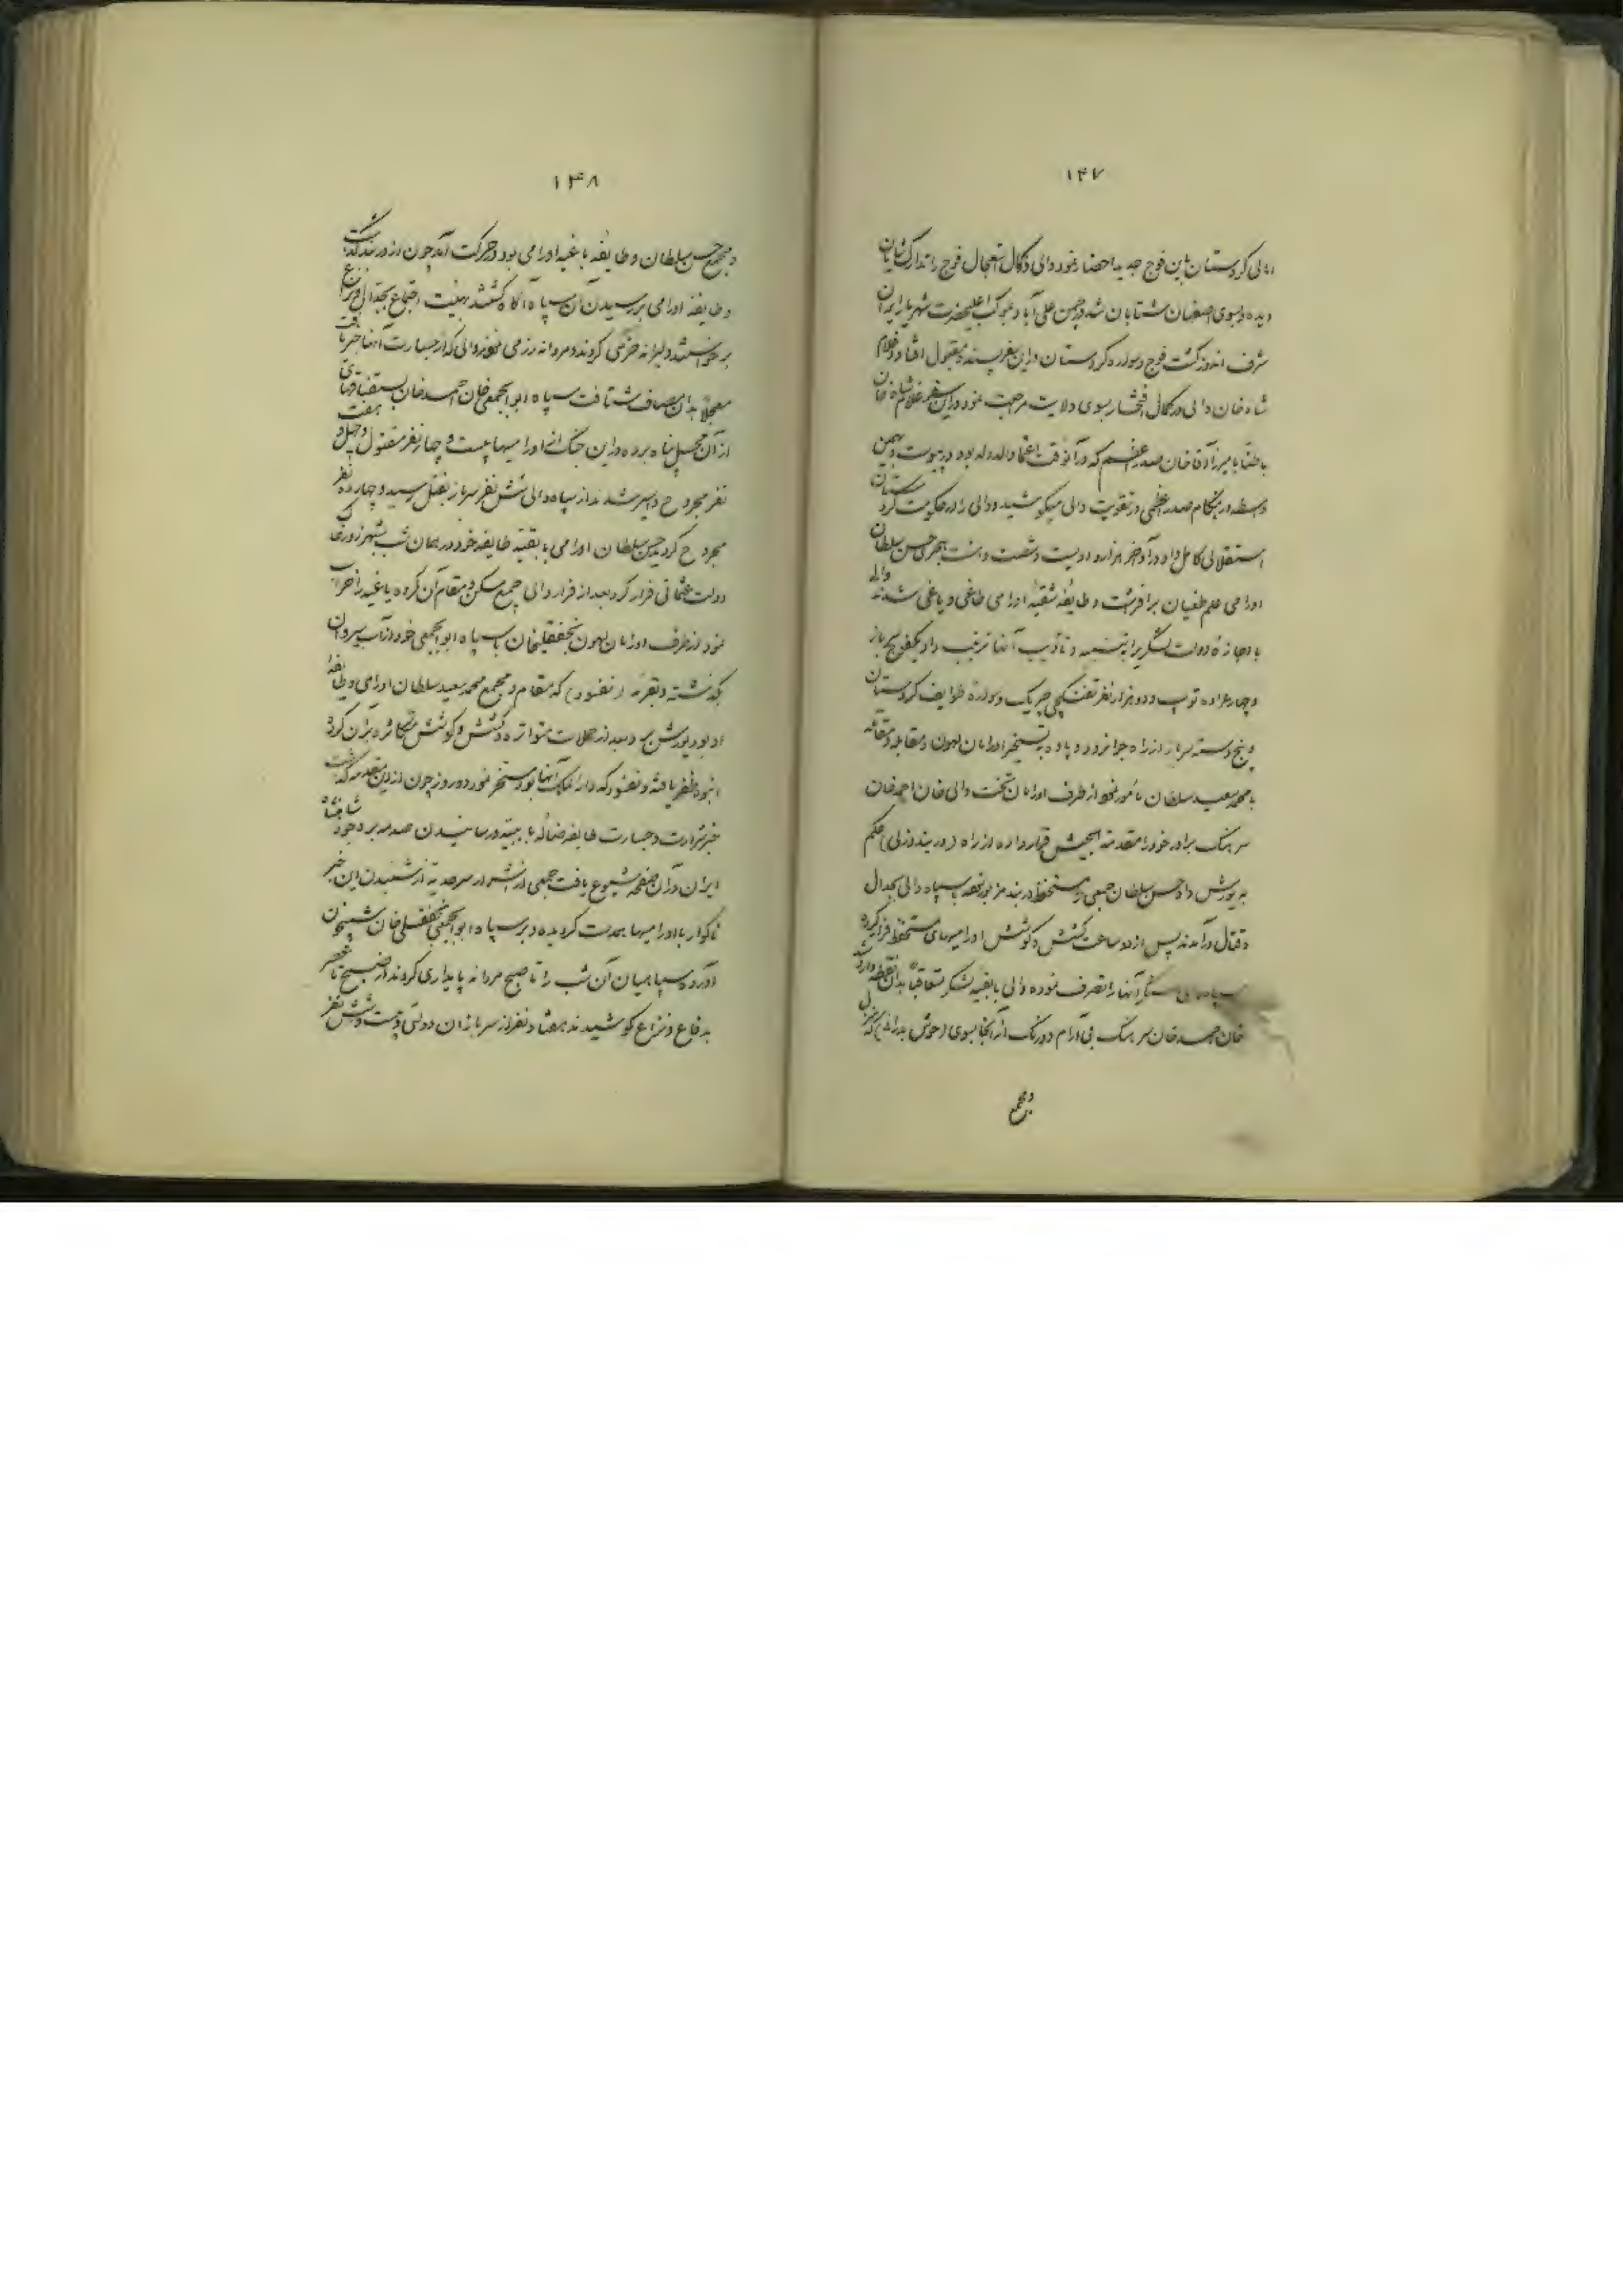 ۱۴۷
والی کردستان باین فوج جدید احضار نمود والی در کمال استعجال فوج را تدارک شایان
دیده و بسوی اصفهان شتابان شد در چمن علی آباد بموکب اعلیحضرت شهریار ایران
شرف اندوز گشت فوج و سواره کردستان در این سفر پسند و مقبول افتاد و غلام
شاه خان والی در کمال افتخار بسوی ولایت مرجعت نمود در این سفر غلام شاه خان
باطنا با میرزا آقا خان صدر اعظم که در آنوقت اعتماد الدوله بود در پیوست و بهمین
واسطه در هنگام صدر اعظمی در تقویت والی میکوشید و والی را در حکومت کردستان
استقلالی کامل داد در آواخر هزار و دویست و شصت و هشت هجری حسن سلطان
اورامی علم طغیان برافرشت و طایفه شقیه اورامی طاغی و یاغی شدند والی
باجازه دولت لشگر را به تنبیه و تأدیب آنها ترغیب داد یکفوج سرباز
و چهار عراده توپ و دو هزار نفر تفنگچی چریک و سواره طوایف کردستان
و پنج دسته سرباز از راه جوانرود و پاوه به تسخیر اورامان لهون و مقابله و مقاتله
با محمد سعید سلطان مأمور نمود از طرف اورامان تخت والی خان احمد خان
سرهنگ برادر خود را مقدمة الجیش قرار داده از راه (دربند دزلی) حکم
به یورش داد حسن سلطان جمعی را مستحفظ دربند مزبور نموده با سپاه والی بجدال
و قتال درآمدند پس از دو ساعت کشش و کوشش اورامیهای مستحفظ فرار کرده
سپاه والی سنگر آنها را تصرف نموده والی با بقیه لشکر متعاقباً بدان نقطه وارد شد
خان احمد خان سرهنگ بی آرام و درنگ از آنجا بسوی (حوش بدرانی) که منزل
و مجمع
۱۴۸
و مجمع حسن سلطان و طایفه باغیه اورامی بود در حرکت آمد چون از دربند گذشت
و طایفه اورامی بر رسیدن آن سپاه آگاه گشتند بهیئت اجتماع بجدال و نزاع
برخواستند دلیرانه جنگی کردند و مردانه رزمی نمودند والی که از جسارت آنها خبر یافت
معجلاً بدان مصاف شتافت سپاه ابوابجمعی خان احمد خان باستقبال قضای
از آن محل پناه برده در این جنگ از اورامیها بیست و چهار نفر مقتول و چهل و هفت
نفر مجروح و اسیر شدند از سپاه والی شش نفر سرباز بقتل رسید و چهارده نفر
مجروح گردید حسن سلطان اورامی با بقیه طایفه خود در همان شب بشهرزور خاک
دولت عثمانی فرار کرد بعد از فرار والی جمیع مسکن و مقام آن گروه یاغیه را خراب
نمود از طرف اورامان لهون نجفقلیخان با سپاه ابوابجمعی خود از آب سیروان
گذشته و بقریه (نفسود) که مقام و مجمع محمد سعید سلطان اورامی و طایفه
او بود یورش برد بعد از حملات متواتره و کشش و کوشش متکاثره بر آن گروه
انبوه ظفر یافته و نفسود که دارالملک آنها بود مسخر نمود دو روز چون از این مقدمه گذشت
خبر شرارت و جسارت طایفه ضاله بابیه و رسانیدن صدمه بر وجود شاهنشاه
ایران در آن صفحه شیوع یافت جمعی از اشرار سرحدیه از شنیدن این خبر
ناگوار با اورامیها همدست گردیده و بر سپاه ابوابجمعی نجفقلی خان شبیخون
آورد سپاهیان آن شب را تا صبح مردانه پایداری کردند از صبح تا عصر
بدفاع و نزاع کوشیدند هفتاد نفر از سربازان دولتی و بیست و شش نفر